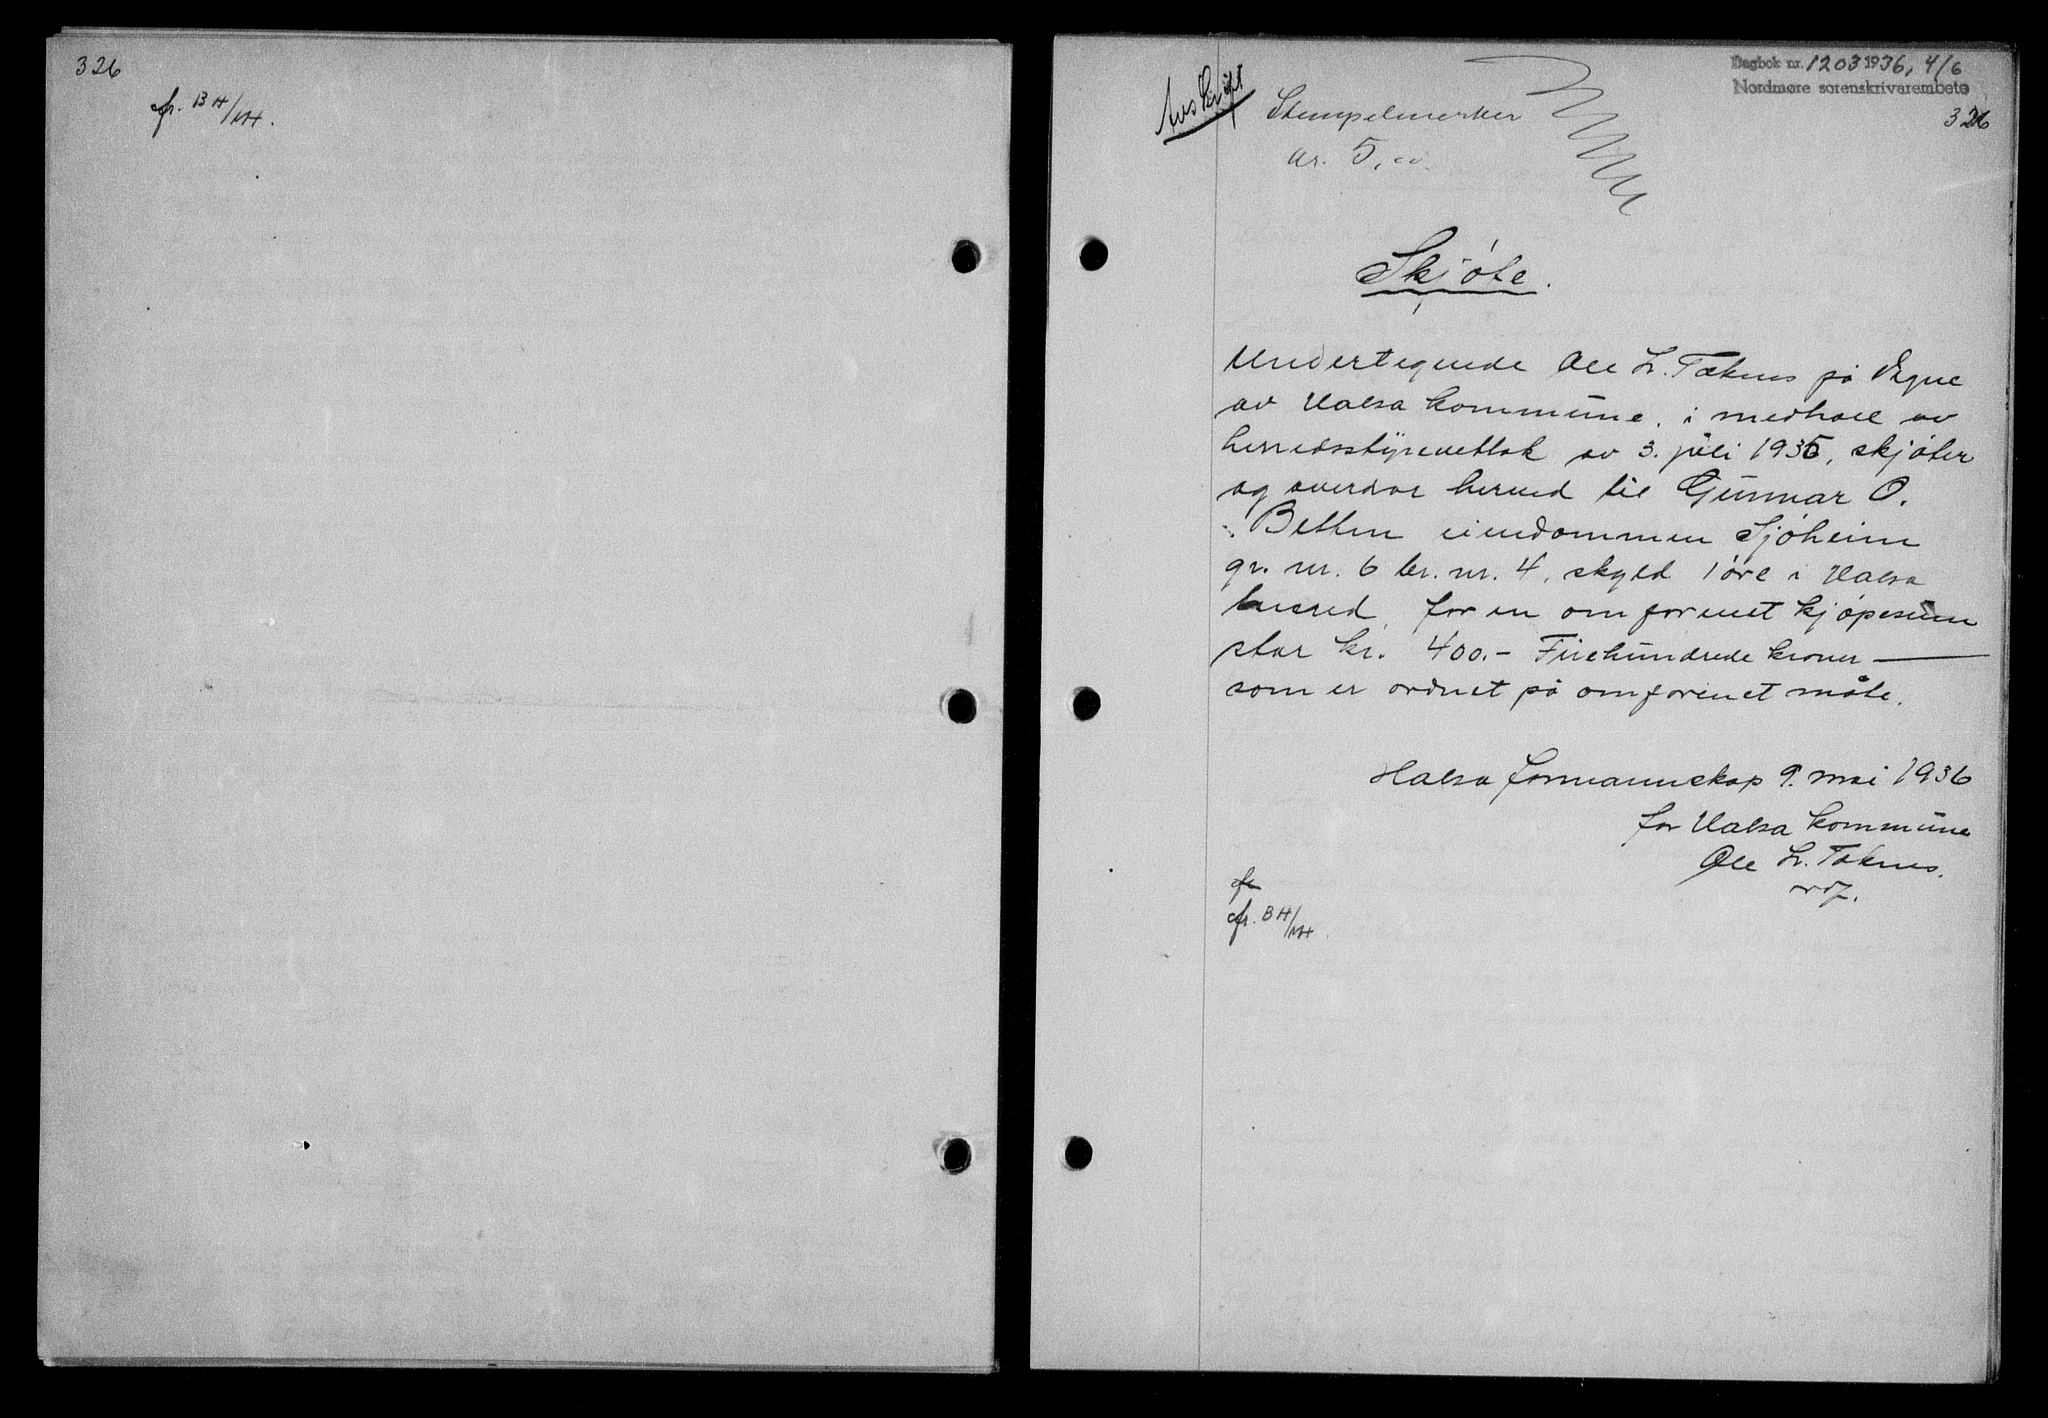 326
cfr. BH/NH.
Dagbok nr. 1203 1936, 4/6
Nordmøre sorenskrivarembete
326
Avskrift
Stempelmerker
kr. 5,00.
Skjøte.
Undertegnede Ole L. Taknes på vegne
av Halsa kommune, i medhold av
herredsstyrevedtak av 3. juli 1935, skjøter
og overdrar herved til Gunnar O.
Betten eiendommen Sjøheim
gr. nr. 6 br. nr. 4, skyld 1 øre i Halsa
herred, for en omforenet kjøpesum
stor kr. 400.- Firehundrede kroner —
som er ordnet på omforenet måte.
Halsa formannskap 9. mai 1936
for Halsa kommune
Ole L. Taknes.
ordf.
cfr. BH/NH.